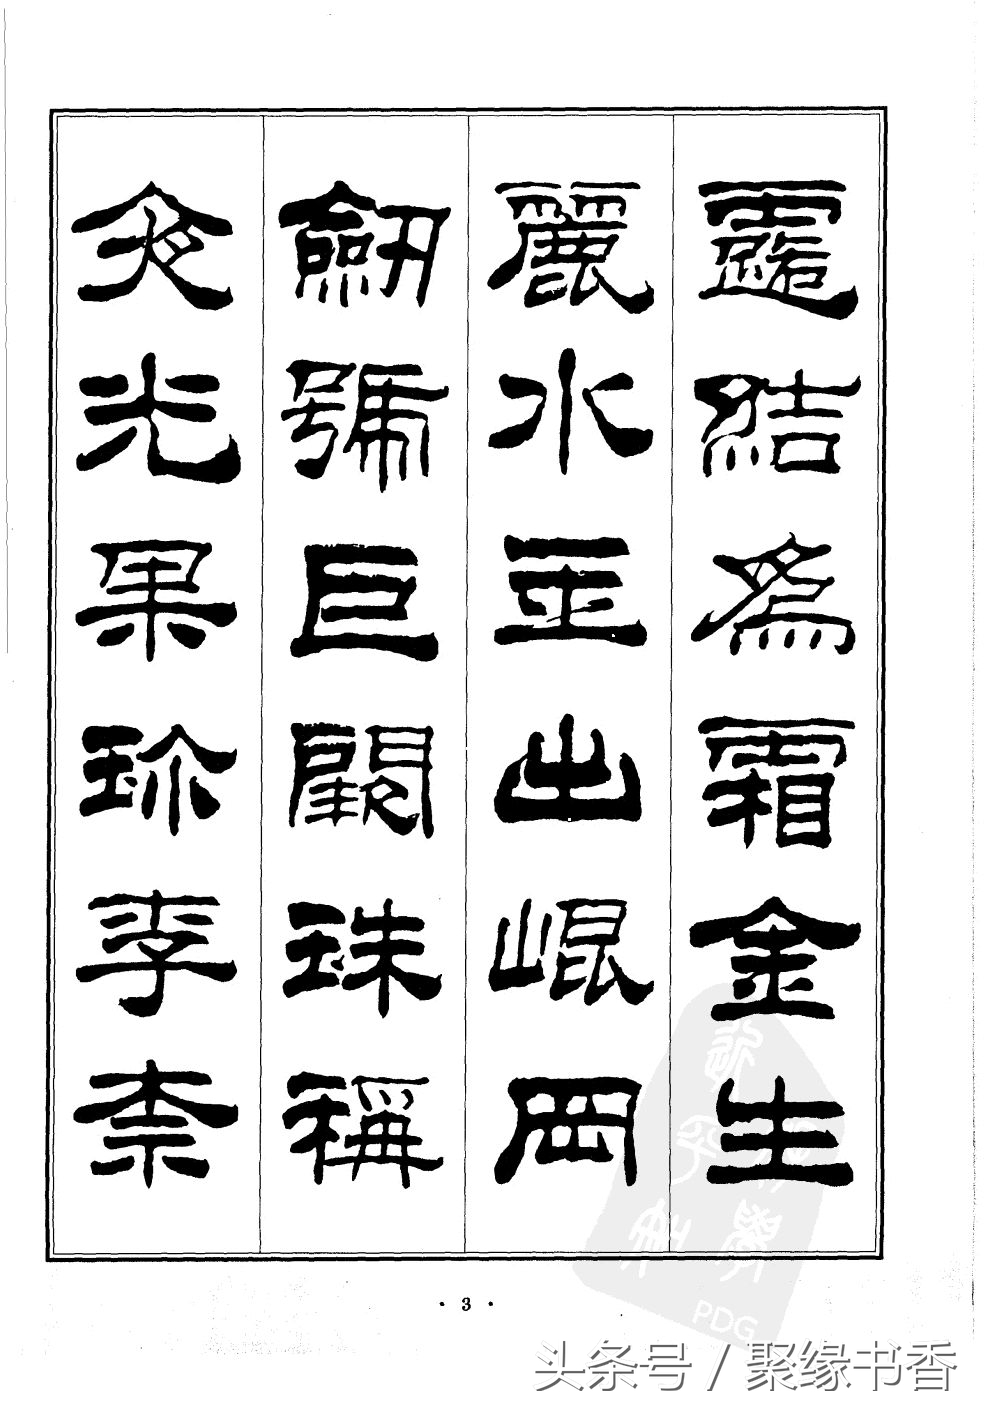 露結為霜金生
麗水玉出崐岡
劒號巨闕珠稱
夜光果珍李柰
· 3 ·
PDG
头条号 / 聚缘书香